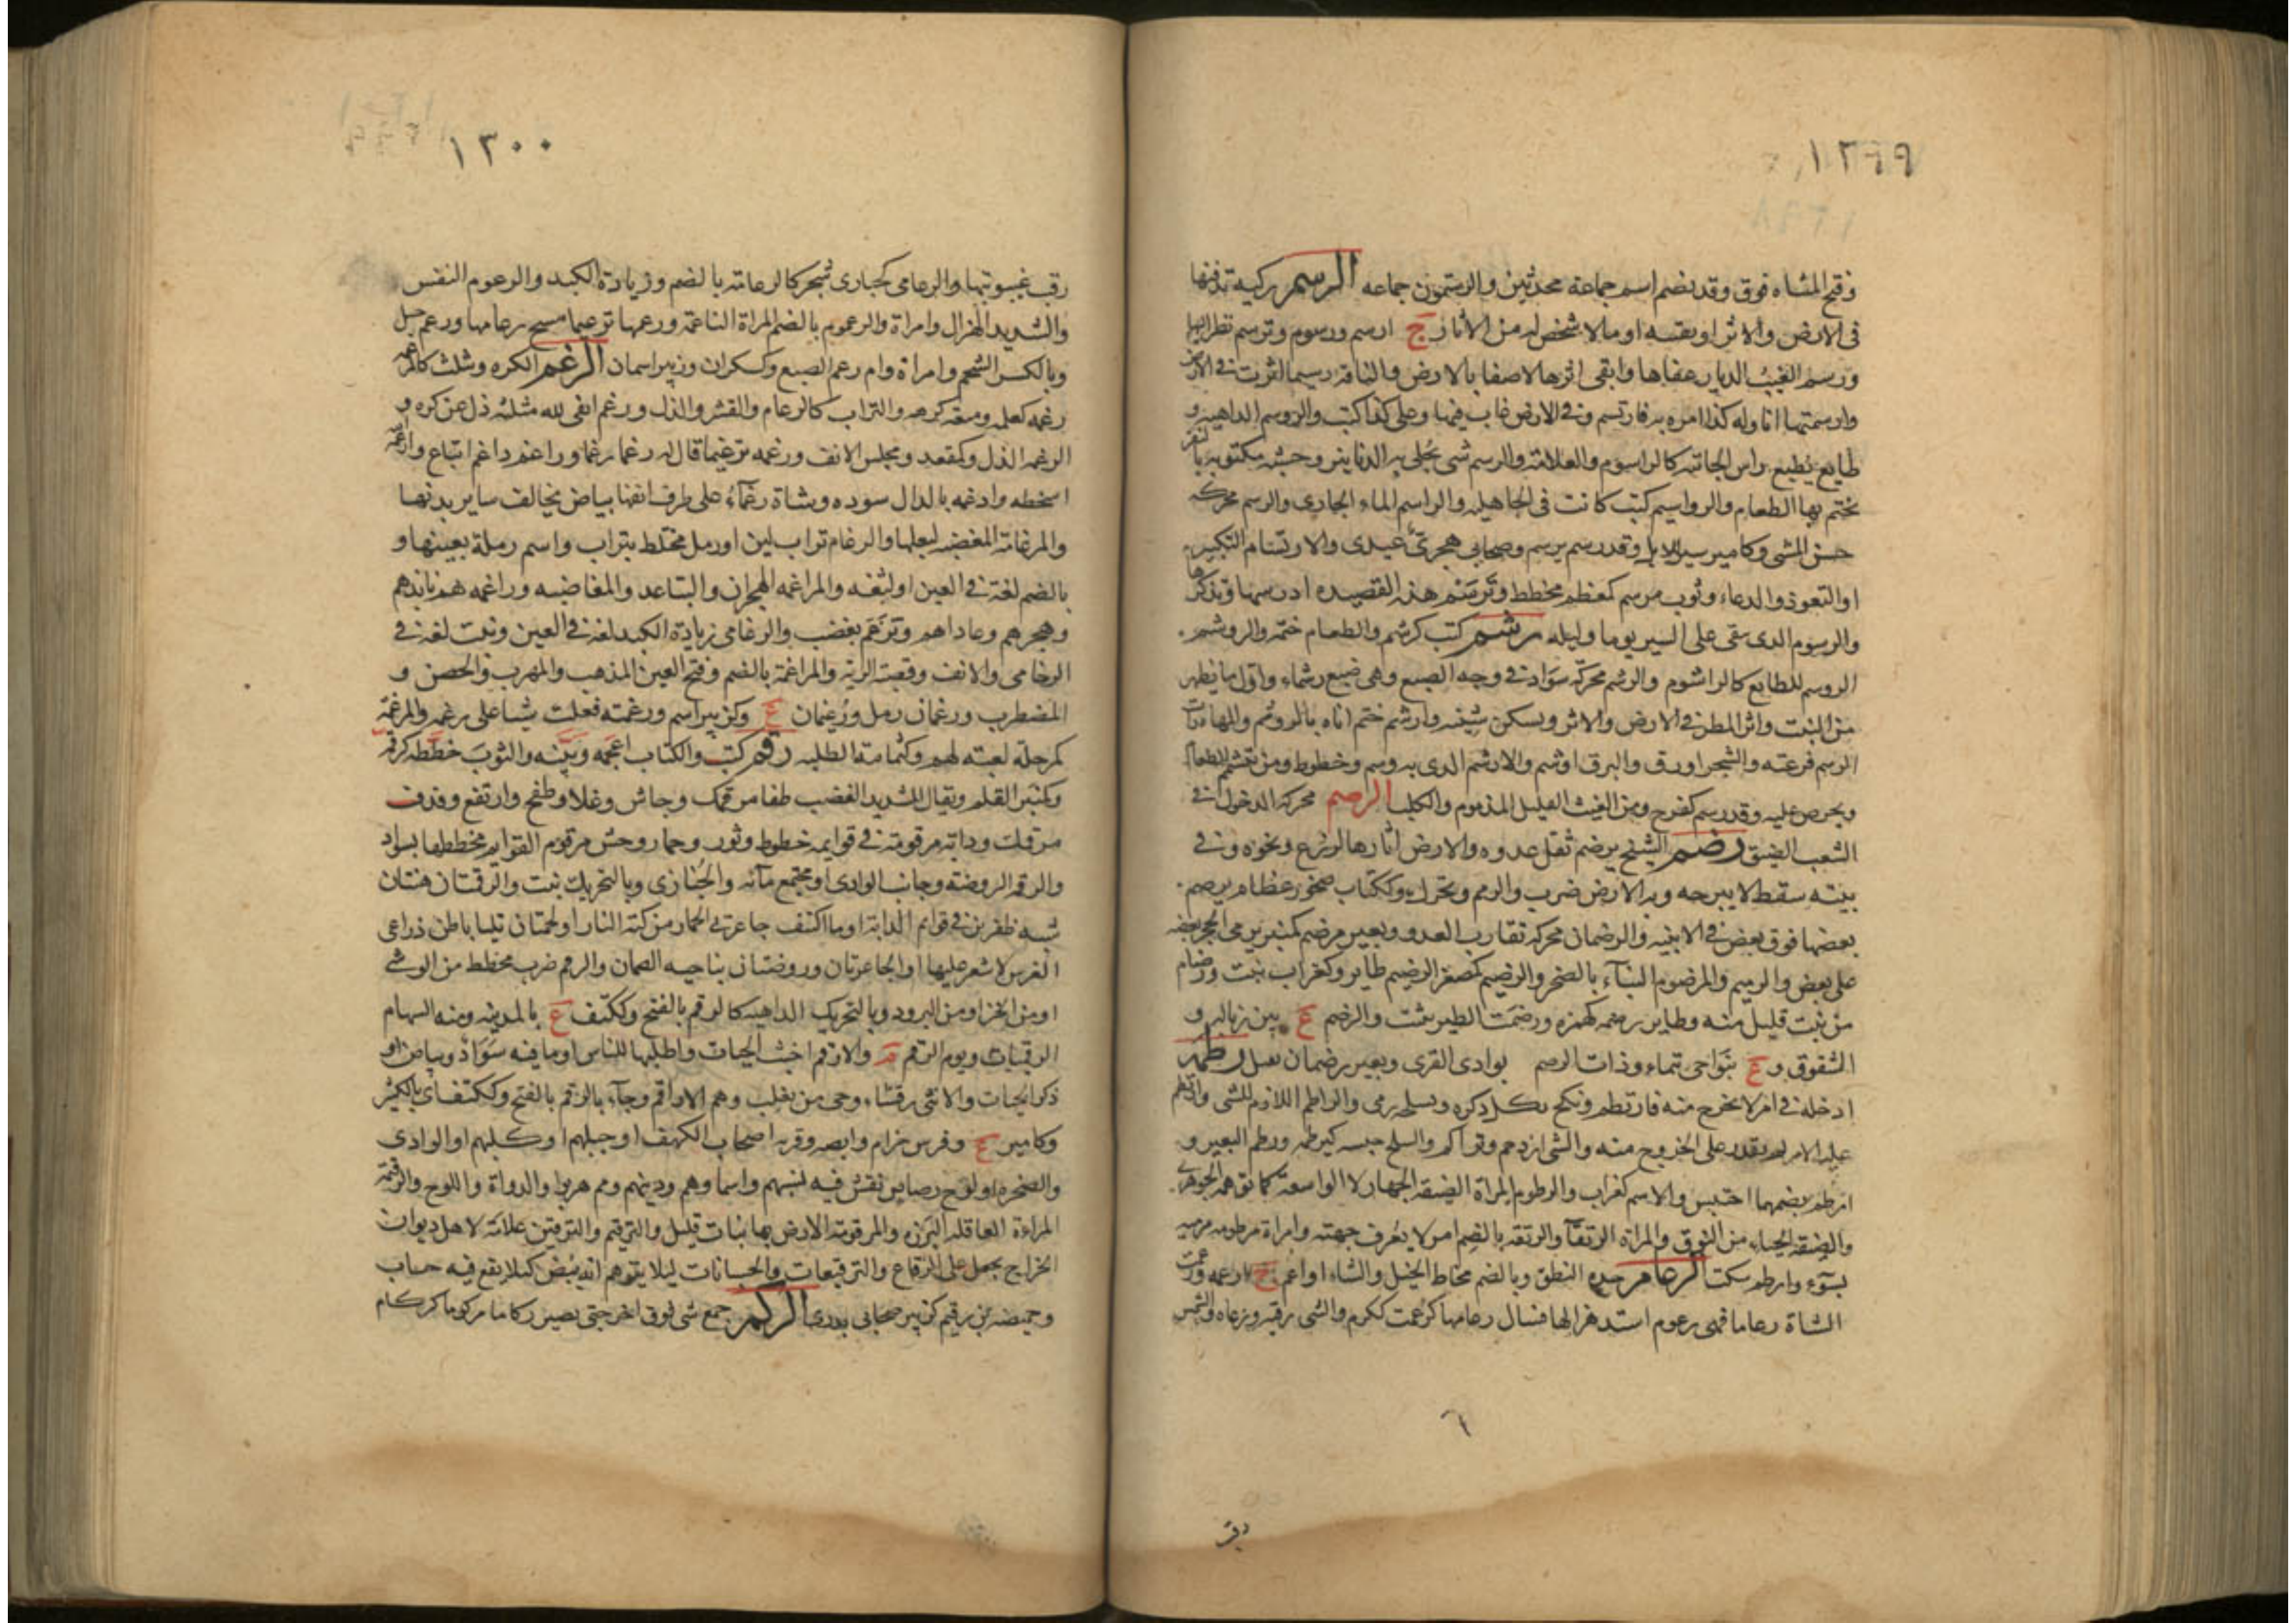 ١٢٩٩
وفتح المثناه فوق وقد يضم اسم جماعة محدثين والرستميون جماعه الرسم ركيه تدفنها
فى الارض والاثر او بقيته او ما لا شخص له من الاثار ج ارسم ورسوم وترسم نظر اليها
ورسم الغيث الديار عفاها وابقى اثرها لاصقا بالارض والناقة رسيما اثرت فى الارض
وارسمتها انا وله كذا امره به فارتسم وفى الارض غاب فيها وعلى كذا كتب والروسم الداهية و
طابع يطبع به راس الخابية كالراسوم والعلامة والرسم شى تجلى به الدنانير وخشبه مكتوبة بالنقر
يختم بها الطعام والرواسيم كتب كانت فى الجاهلية والراسم الماء الجارى والرسم محركه
حسن المشى وكامير سير للابل وقد رسم يرسم وصحابى هجرى عبدى والارتسام التكبير
او التعوذ والدعاء وثوب مرسم كمعظم مخطط وترسم هذه القصيده ادرسها وتذكرها
والرسوم الذى يبقى على السير يوما وليله رشم كتب كرشم والطعام ختمه والروشم
الروسم للطابع كالراشوم والرشم محركة سواد فى وجه الضبع وهى ضبع رشماء واول ما يظهر
من النبت واثر المطر فى الارض والاثر ويسكن شينه وارشم ختم اناه بالروشم والمهاة رات
الرشم فرعته والشجر اورق والبرق اوشم والارشم الذى به وشم وخطوط ومن تشمم الطعام
ويحرص عليه وقد رشم كفرح ومن الغيث القليل المذموم والكلب الرصم محركة الدخول فى
الشعب الضيق رضم الشيخ يرضم ثقل عدوه والارض اثارها لزرع ونحوه وفى
بيته سقط لا يبرحه وبه الارض ضرب والرضم وتحرك وككتاب صخور عظام يرضم
بعضها فوق بعض فى الابنيه والرضمان محركة تقارب العدو وبعير مرضم كمنبر يرمى الحجر بعضه
على بعض والرضيم والمرضوم البناء بالصخر والرضيم كمصغر الرضيم طاير وكغراب نبت ورضام
من نبت قليل منه وطاير رضمه كهمزه ورضمت الطير ثبتت والرضم ع بين زباله و
الشقوق و ع بنواحى تيماء وذات الرضم بوادى القرى وبعير رضمان ثقيل رطمه
ادخله فى امر لا يخرج منه فارتطم ونكح بكل ذكره وبسلحه رمى والراطم اللازم للشى وارتطم
عليه الامر لم يقدر على الخروج منه والشى ازدحم وتراكم والسلح حبسه كرطمه ورطم البعير و
ارطم بضمهما احتبس والاسم كغراب والرطوم المراة الضيقة الجهاز لا الواسعة كما توهمه الجوهرى
والضيقة الحياء من النوق والمراة الرتقاء والرتقه بالضم امر لا يعرف جهته وامراة مرطومه مرميه
بسوء وارطم سكت الرعام حده النظر وبالضم مخاط الخيل والشاء او اعم ج ارعمه ورعمت
الشاة رعاما فهى رعوم اشتد هزالها فسال رعامها كرعمت ككرم والشى رقبه ورعاه والشمس
٦
رقب
١٣٠٠
رقب غيبوبتها والرعامى كحبارى شجر كالرعامة بالضم وزيادة الكبد والرعوم النفس
والشديد الهزال وامراة والرعموم بالضم المراة الناعمة ورعمها ترعيما مسح رعامها ورعم جبل
وبالكسر الشحم وامراة وام رعم الضبع وكسكران وزبير اسمان الرغم الكره ويثلث كالمرغمة
رغمه كعلمه ومنعه كرهه والتراب كالرغام والقسر والذل ورغم انفى لله مثلثه ذل عن كره و
الرغم الذل وكمقعد ومجلس الانف ورغمه ترغيما قال له رغما رغما وراغم داغم اتباع وارغمه
اسخطه وادغمه بالدال سوده وشاة رغماء على طرف انفها بياض يخالف ساير بدنها
والمرغامة المغضبه لبعلها والرغام تراب لين او رمل مختلط بتراب واسم رملة بعينها و
بالضم لغة فى العين او لثغه والمراغمه الهجران والتباعد والمغاضبه وراغمهم نابذهم
وهجرهم وعاداهم وترغم تغضب والرغامى زيادة الكبد لغة فى العين ونبت لغة فى
الرخامى والانف وقصبة الرية والمراغم بالضم وفتح الغين المذهب والمهرب والحصن و
المضطرب ورغمان رمل ورغيمان ع وكزبير اسم ورغمته فعلت شيا على رغمه والمرغمة
كمرحلة لعبة لهم وكثمامة الطلبه رقم كتب والكتاب اعجمه وبينه والثوب خططه كرقمه
وكمنبر القلم ويقال للشديد الغضب طفا مرقمك وجاش وغلا وطفح وارتفع وقذف
مرقمك ودابة مرقومة فى قوايمه خطوط وثور وحمار وحش مرقوم القوايم مخططها بسواد
والرقمه الروضة وجانب الوادى او مجتمع مائه والخبازى وبالتحريك نبت والرقمتان هنتان
شبه ظفرين فى قوايم الدابة او ما اكتنف جاعرتى الحمار من كية النار او لحمتان تليا باطن ذراعى
الفرس لا شعر عليها او الجاعرتان وروضتان بناحيه الصمان والرقم ضرب مخطط من الوشى
او من الخز او من البرود وبالتحريك الداهية كالرقم بالفتح وككتف ع بالمدينه ومنه السهام
الرقميات ويوم الرقم م والارقم اخبث الحيات واطلبها للناس او ما فيه سواد وبياض او
ذكر الحيات والانثى رقشاء وحى من تغلب وهم الاراقم وجاء بالرقم بالفتح وككتف اى بالكثير
وكامير ع وفرس حزام وابصه وقرية اصحاب الكهف او جبلهم او كلبهم او الوادى
والصخره او لوح رصاص نقش فيه نسبهم واسماوهم ودينهم ومم هربوا والدواة واللوح والرقيمة
المراءة العاقله البرزه والمرقومة الارض بها نبات قليل والترقيم والترقين علامة لاهل ديوان
الخراج يجعل على الرقاع والترقيعات والحسبانات ليلا يتوهم انه بيض كيلا يقع فيه حساب
وحميضه بن رقيم كزبير صحابى بدرى الركم جمع شى فوق اخر حتى يصير ركاما مركوما كركام